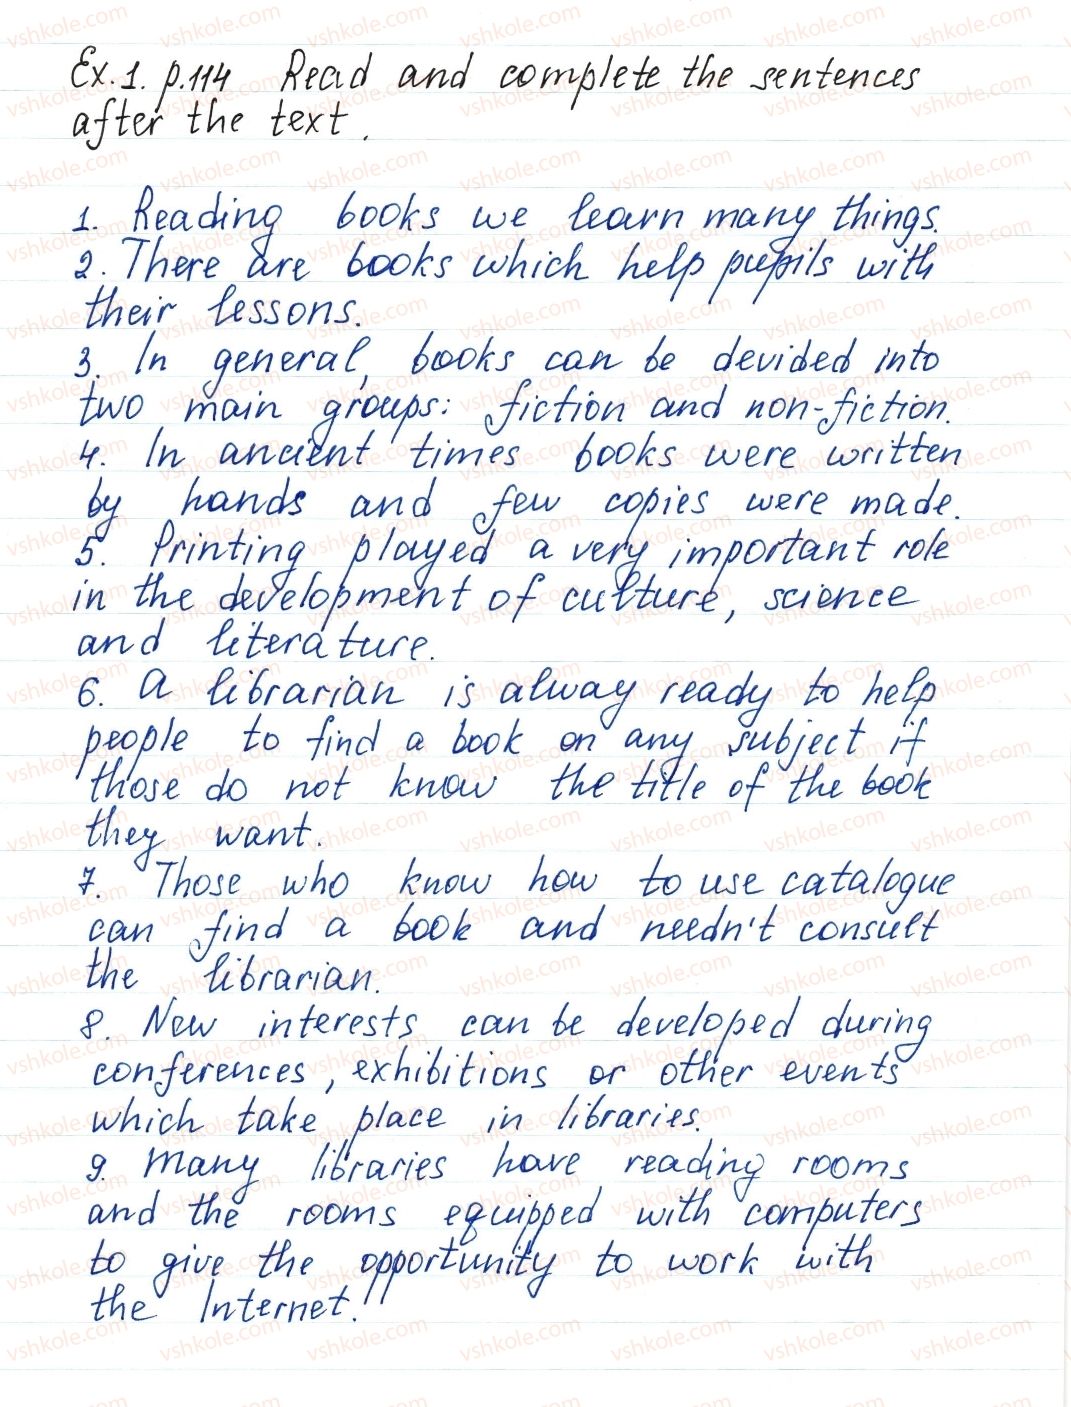 Ex.1. p.114 Read and complete the sentences
after the text.
1. Reading books we learn many things.
2. There are books which help pupils with
their lessons.
3. In general, books can be devided into
two main groups: fiction and non-fiction.
4. In ancient times books were written
by hands and few copies were made.
5. Printing played a very important role
in the development of culture, science
and literature.
6. A librarian is alway ready to help
people to find a book on any subject if
those do not know the title of the book
they want.
7. Those who know how to use catalogue
can find a book and needn't consult
the librarian.
8. New interests can be developed during
conferences, exhibitions or other events
which take place in libraries.
9. Many libraries have reading rooms
and the rooms equipped with computers
to give the opportunity to work with
the Internet.
vshkole.com